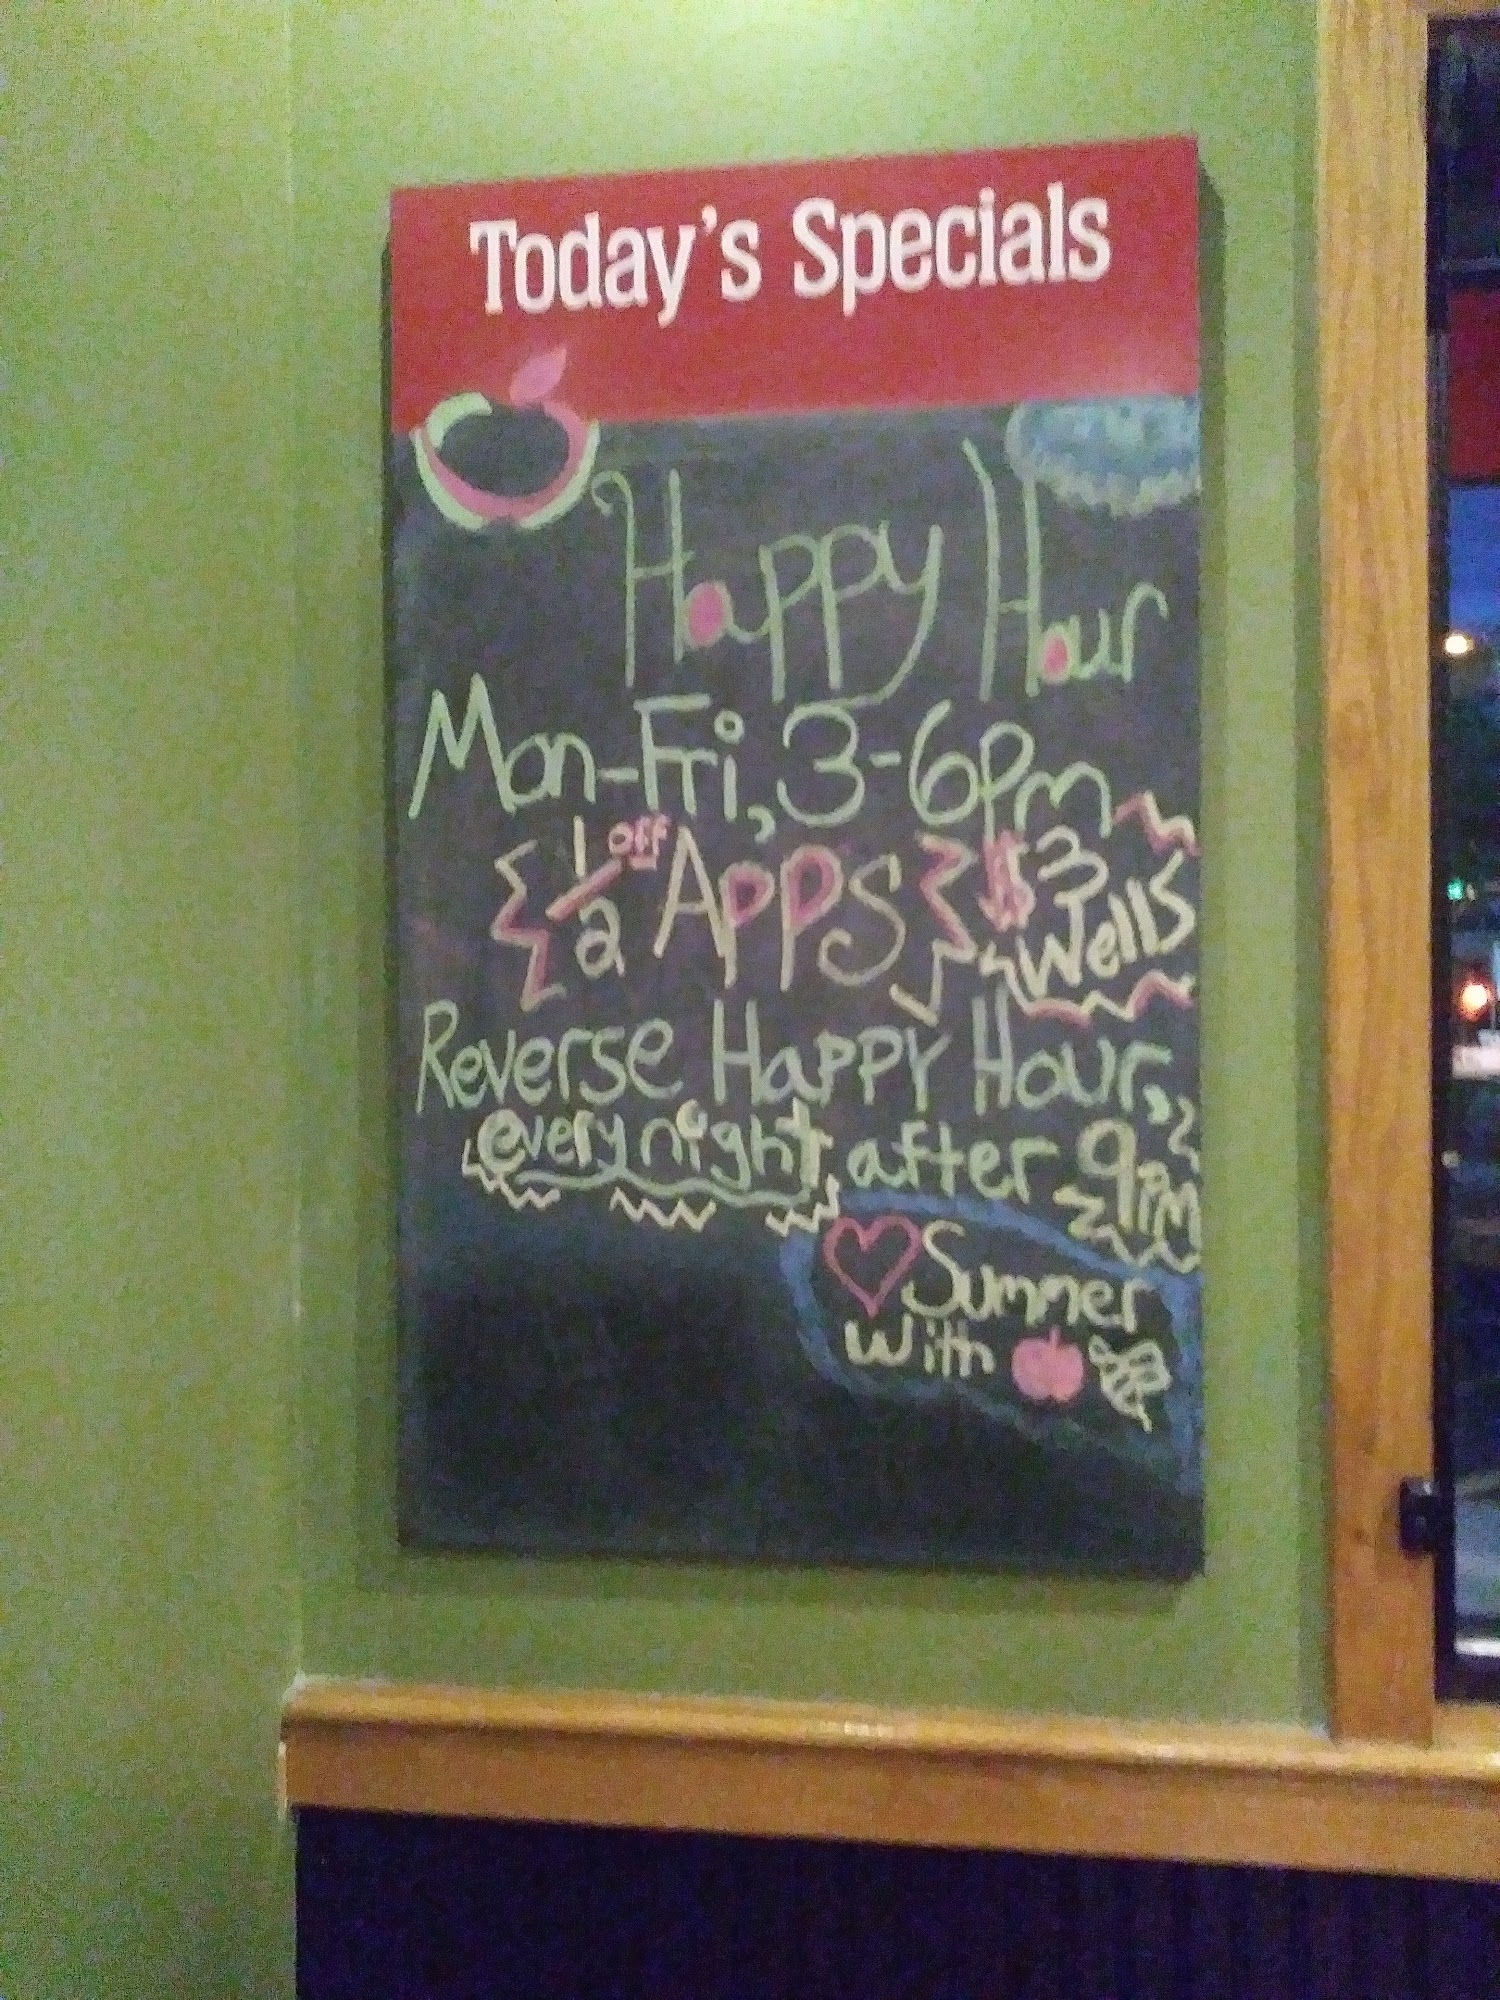 Today's Specials
Happy Hour
Mon-Fri, 3-6pm
1/2 off Apps $3 Wells
Reverse Happy Hour,
every night after 9pm
Summer
with